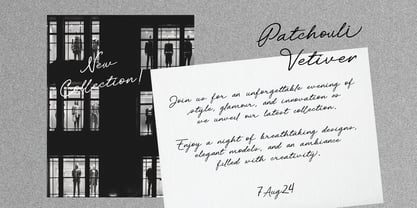 New
Collection!
Patchouli
Vetiver
Join us for an unforgettable evening of
style, glamour, and innovation as
we unveil our latest collection.
Enjoy a night of breathtaking designs,
elegant models, and an ambiance
filled with creativity.
7.Aug.24